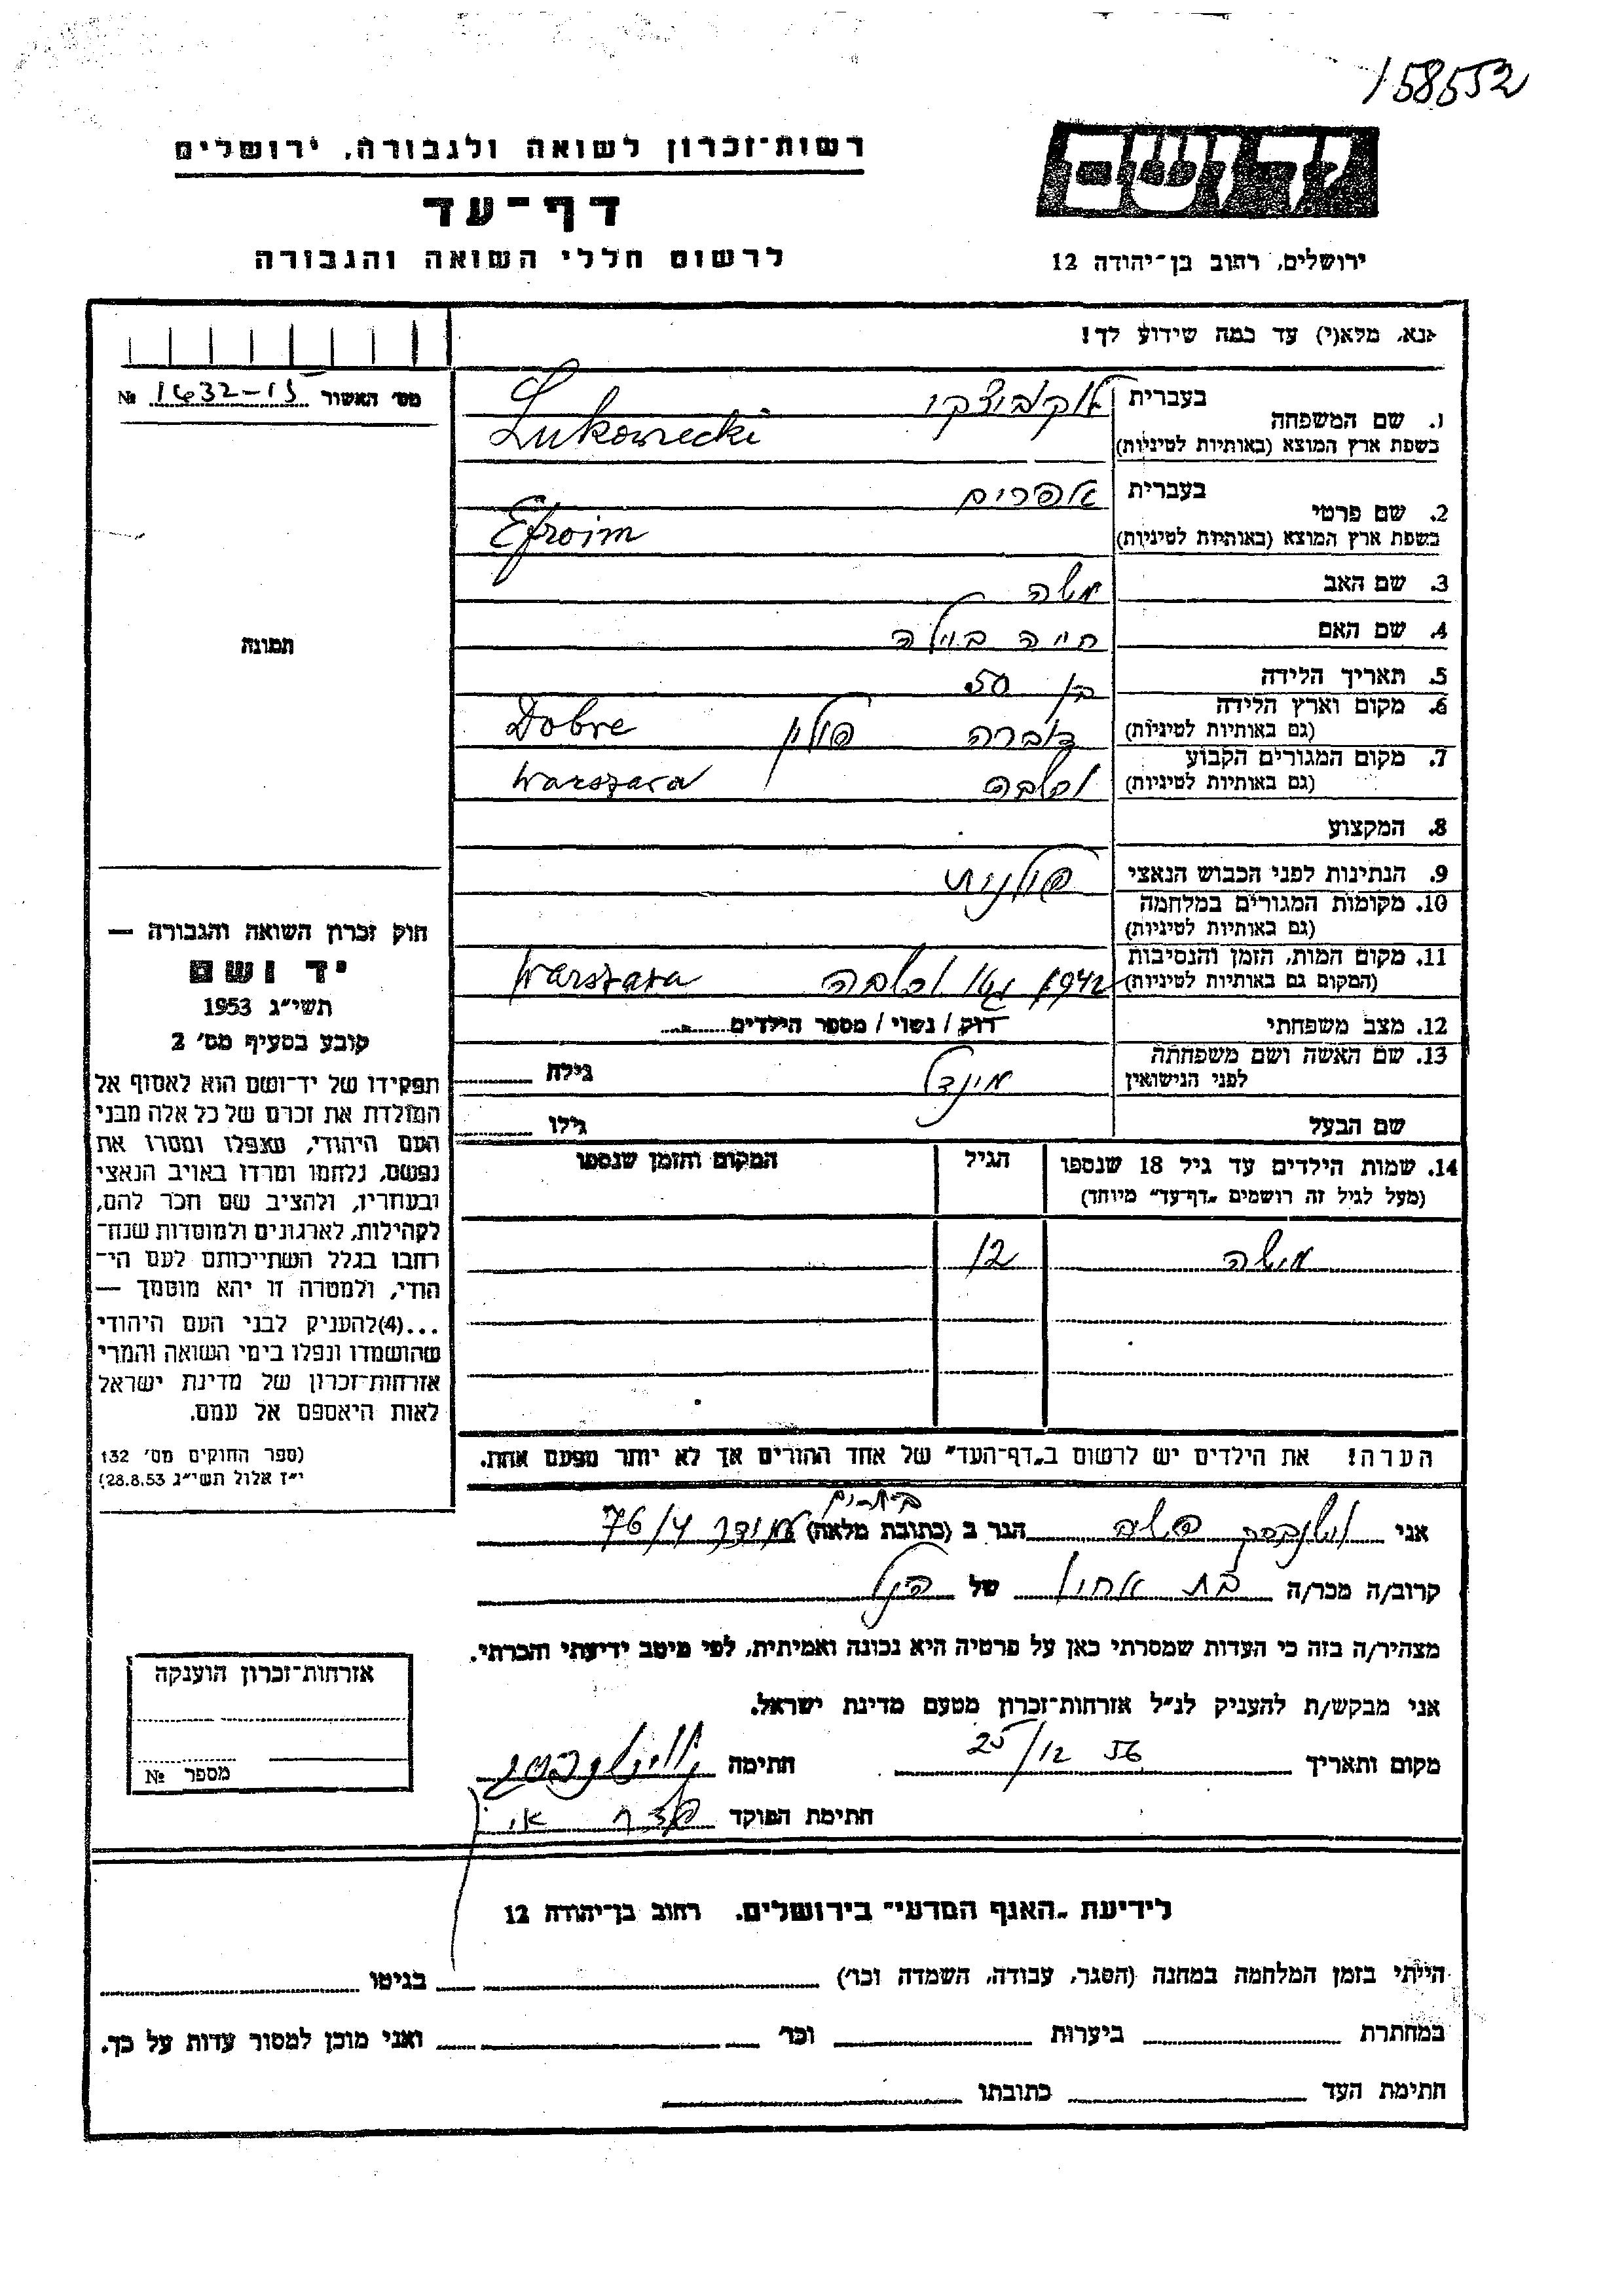 158552
רשות־זכרון לשואה ולגבורה, ירושלים
דף־עד
לרשום חללי השואה והגבורה
יד ושם
ירושלים, רחוב בן־יהודה 12
אנא, מלא(י) עד כמה שידוע לך!
מס׳ האשור 1632-15 №
1. שם המשפחה
בעברית
בשפת ארץ המוצא (באותיות לטיניות)
Lukowiecki
2. שם פרטי
בעברית אפרים
בשפת ארץ המוצא (באותיות לטיניות)
Efroim
3. שם האב משה
4. שם האם חיה ביילה
5. תאריך הלידה בן 50
6. מקום וארץ הלידה
(גם באותיות לטיניות) דוברה פולין Dobre
7. מקום המגורים הקבוע
(גם באותיות לטיניות) ורשה Warszawa
8. המקצוע
9. הנתינות לפני הכבוש הנאצי פולנית
10. מקומות המגורים במלחמה
(גם באותיות לטיניות)
11. מקום המות, הזמן והנסיבות
(המקום גם באותיות לטיניות) 1942 גטו ורשה Warszawa
12. מצב משפחתי רוק / נשוי / מספר הילדים
13. שם האשה ושם משפחתה
לפני הנישואין מינדל גילה
שם הבעל גילו
14. שמות הילדים עד גיל 18 שנספו
(מעל לגיל זה רושמים „דף־עד״ מיוחד)
הגיל
המקום והזמן שנספו
משה 12
הערה! את הילדים יש לרשום ב„דף־העד״ של אחד ההורים אך לא יותר מפעם אחת.
תמונה
חוק זכרון השואה והגבורה —
יד ושם
תשי״ג 1953
קובע בסעיף מס׳ 2
תפקידו של יד־ושם הוא לאסוף אל
המולדת את זכרם של כל אלה מבני
העם היהודי, שנפלו ומסרו את
נפשם, נלחמו ומרדו באויב הנאצי
ובעוזריו, ולהציב שם וזכר להם,
לקהילות, לארגונים ולמוסדות שנח־
רחבו בגלל השתייכותם לעם הי־
הודי, ולמטרה זו יהא מוסמך —
...(4)להעניק לבני העם היהודי
שהושמדו ונפלו בימי השואה והמרי
אזרחות־זכרון של מדינת ישראל
לאות היאספם אל עמם.
(ספר החוקים מס׳ 132
י״ז אלול תשי״ג 28.8.53)
אני הגר ב (כתובת מלאה) 76/4
קרוב/ה מכר/ה בת אחיו של הנ״ל
מצהיר/ה בזה כי העדות שמסרתי כאן על פרטיה היא נכונה ואמיתית, לפי מיטב ידיעתי והכרתי.
אני מבקש/ת להעניק לנ״ל אזרחות־זכרון מטעם מדינת ישראל.
מקום ותאריך 25/12 56 חתימה
חתימת הפוקד
אזרחות־זכרון הוענקה
מספר №
לידיעת „האגף המדעי״ בירושלים. רחוב בן־יהודה 12
הייתי בזמן המלחמה במחנה (הסגר, עבודה, השמדה וכו׳) בגיטו
במחתרת ביערות וכו׳ ואני מוכן למסור עדות על כך.
חתימת העד כתובתו